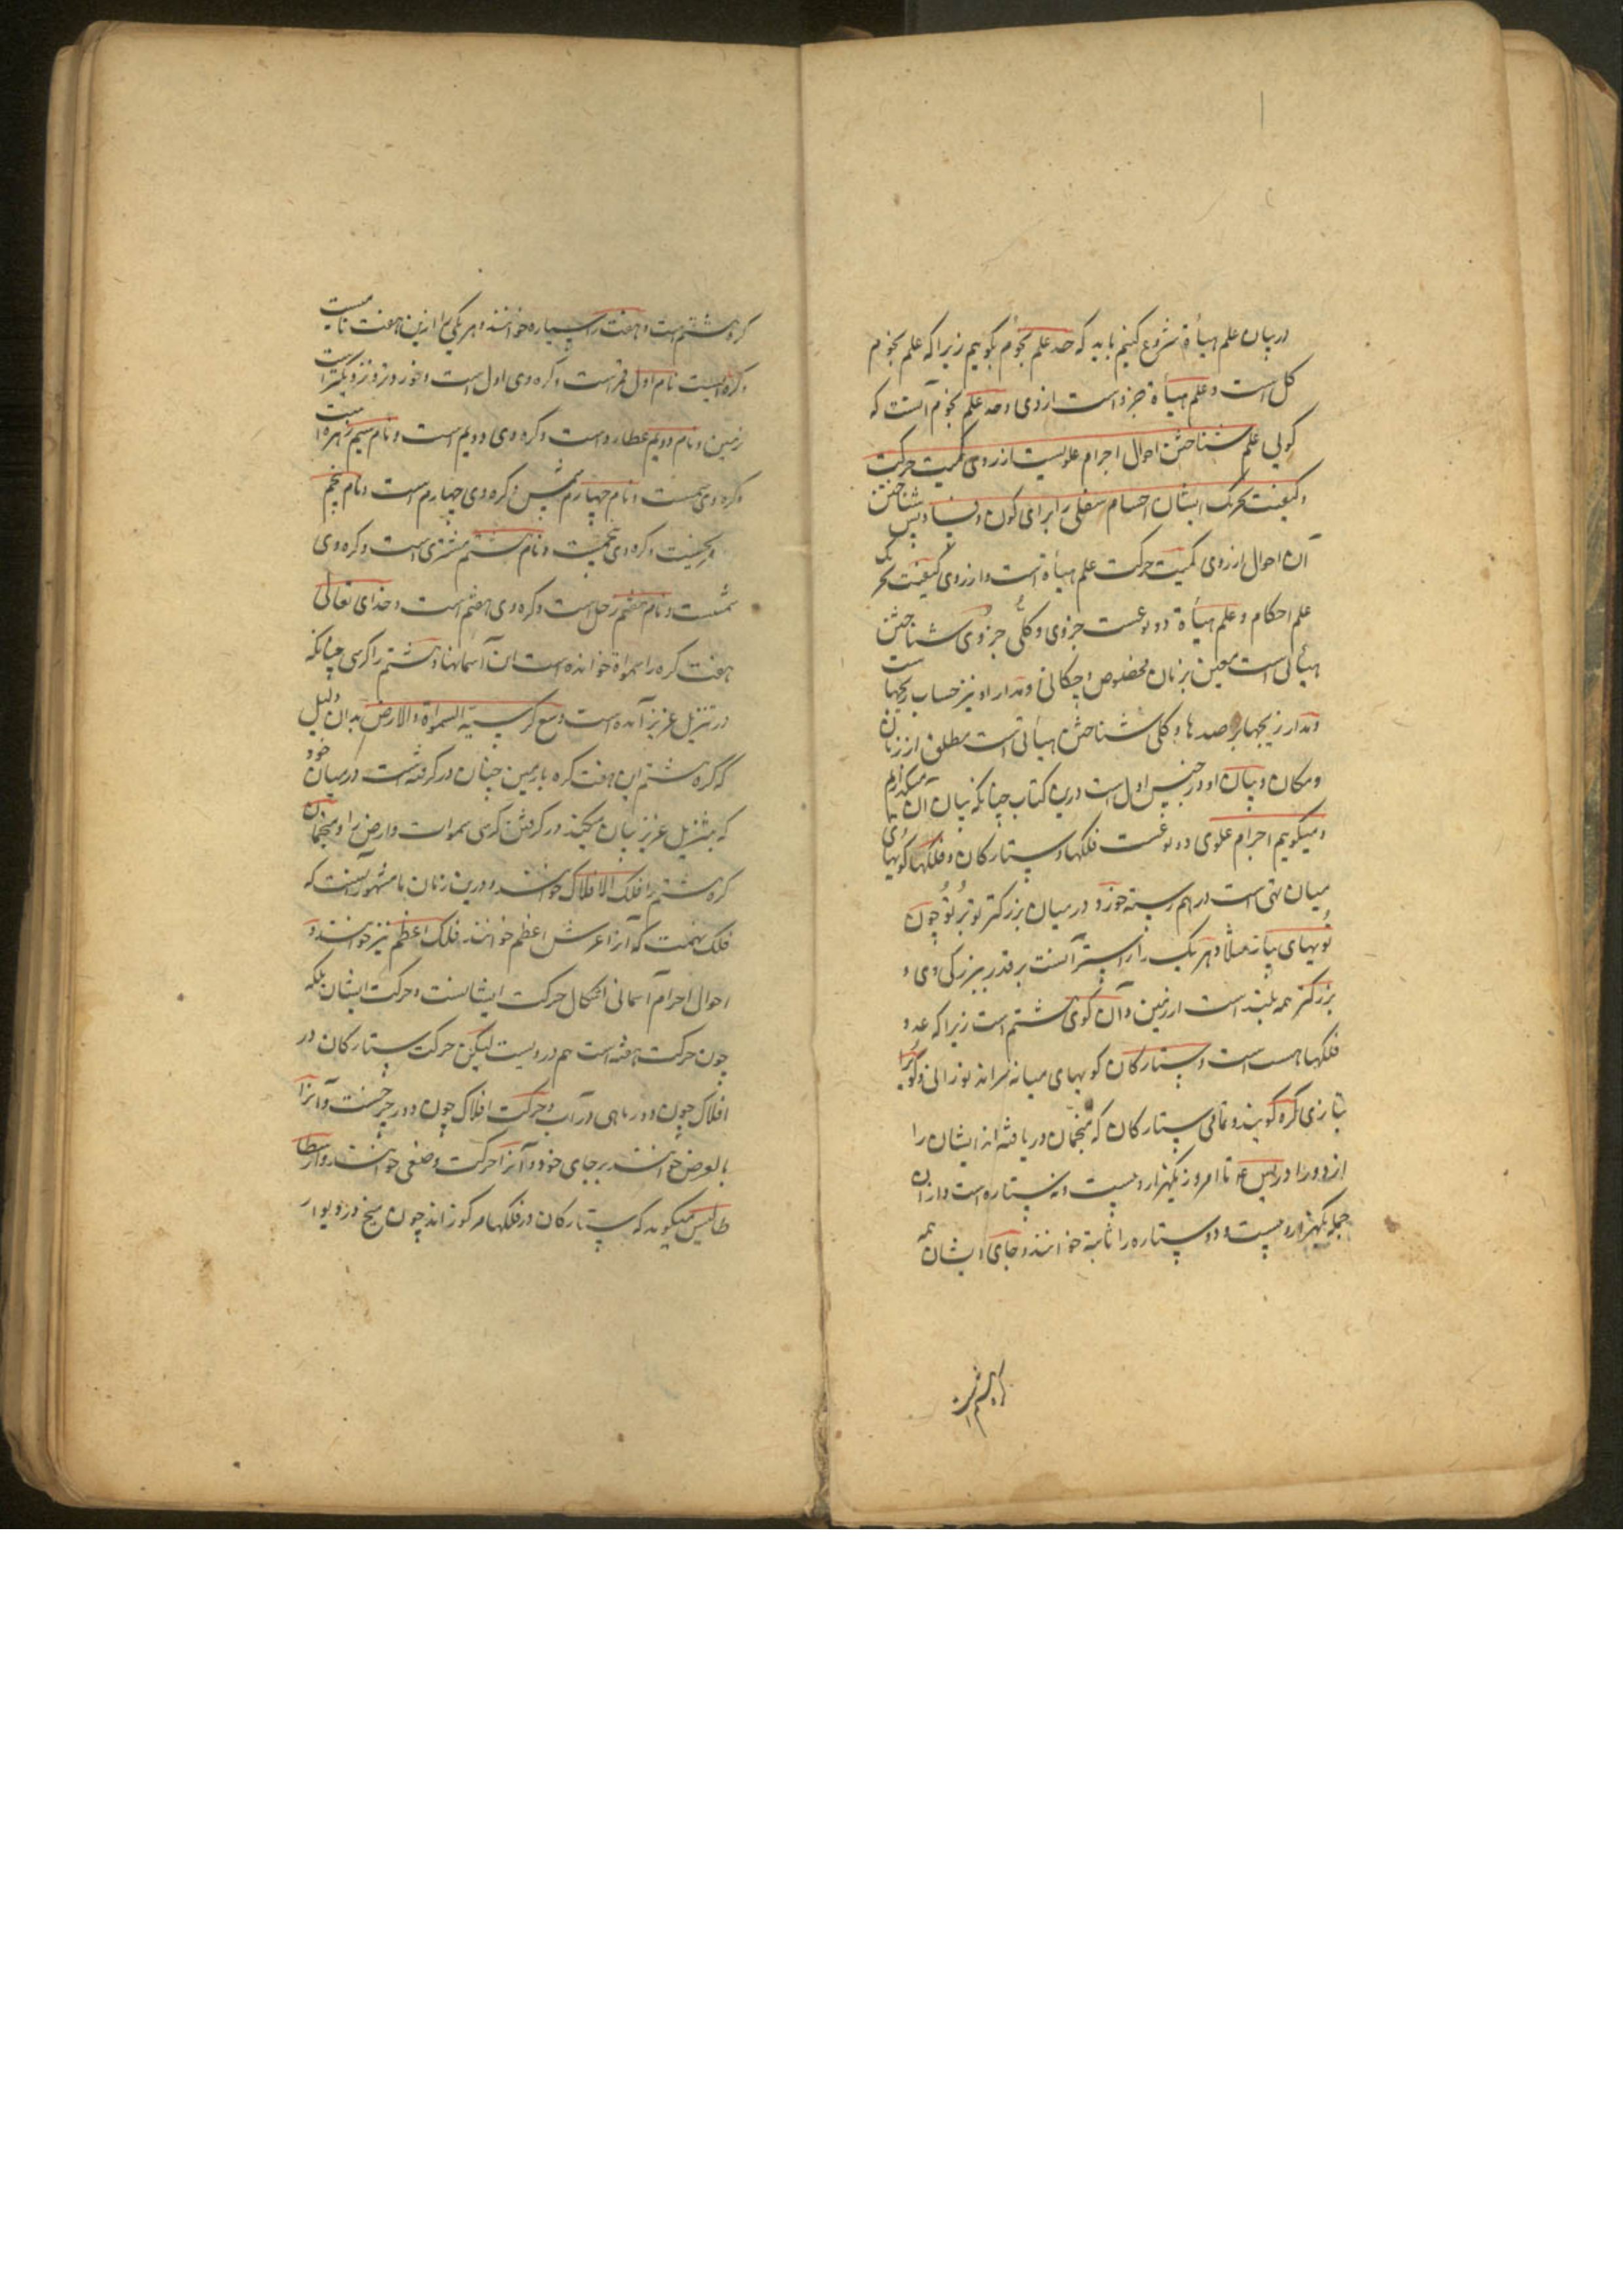 در بیان علم هیأة شروع کنیم باید که حد علم نجوم بگوییم زیرا که علم نجوم
کل است و علم هیأة جزو است از وی و حد علم نجوم آنست که
گویی علم شناختن احوال اجرام علویست از روی کمیت حرکت
و کیفیت تحریک ایشان اجسام سفلی را برای کون و فساد پس شناختن
آن احوال از روی کمیت حرکت علم هیأة است و از روی کیفیت تحریک
علم احکام و علم هیأة دو نوعست جزوی و کلی جزوی شناختن
هیأتی است معین بزمان مخصوص و مکانی و مدار او نیز حساب زیجهاست
و مدار زیجها بر رصدها و کلی شناختن هیأتی است مطلق از زمان
و مکان و بیان او در جنس اول است درین کتاب چنانکه بیان آن میکنیم
و میگوییم اجرام علوی دو نوعست فلکها و ستارگان و فلکها گویهای
میان تهی است در هم رسته خرد در میان بزرگتر تو بر تو چون
تویهای پیاز مثلا و هر یک را ستبر آنست بر قدر بزرگی وی و
بزرگتر همه بلند است از زمین و آن گوی هشتم است زیرا که عدد
فلکها هست است و ستارگان گویهای میانه پراند نورانی و گوی را
بتازی کره گویند و تمامی ستارگان که منجمان دریافته اند ایشان را
از دور ادریس ع تا امروز یکهزار و بیست و نه ستاره است و از آن
جمله یکهزار و بیست و دو ستاره را ثابته خوانند و جای ایشان همه
کره هشتم است و هفت را سیاره خوانند و هر یکی را ازین هفت نامیست
و کره ایست نام اول قمر است و کره وی اول است و خردتر و نزدیکتر است
زمین و نام دویم عطارد است و کره وی دویم است و نام سیم زهره است
و کره وی سیمست و نام چهارم شمس و کره وی چهارم است و نام پنجم
مریخست و کره وی پنجمست و نام ششتم مشتری است و کره وی
ششمست و نام هفتم زحل است و کره وی هفتم است و خدای تعالی
هفت کره را سمواة خوانده است ان آسمانها و هشتم را کرسی چنانکه
در تنزیل عزیز آمده است وسع کرسیه السمواة و الارض بدان دلیل
که کره هشتم این هفت کره با زمین چنان در گرفته است در میان خود
که تنزیل عزیز بیان میکند در گرفتن کرسی سموات و ارض را و منجمان
کره هشتم را فلک الافلاک خوانند و درین زمان با مشهور آنست که
فلک نهمت که آنرا عرش اعظم خوانند فلک اعظم نیز خوانند و
احوال اجرام آسمانی اشکال حرکت ایشانست و حرکت ایشان بلکه
چون حرکت هفته است هم دوریست لیکن حرکت ستارگان در
افلاک چون دور ماهی در آب و حرکت افلاک چون دور چرخست و آنرا
بالعرض خوانند بر جای خود و آنرا حرکت وضعی خوانند و ارسطا
طالیس میگوید که ستارگان در فلکها مرکوز اند چون میخ در دیوار